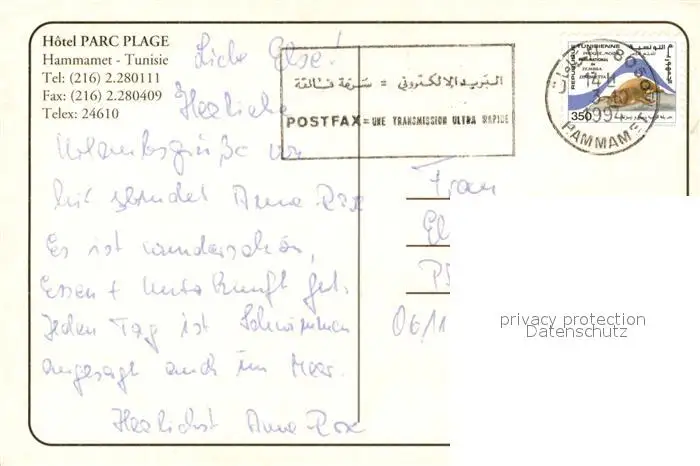 Hôtel PARC PLAGE
Hammamet - Tunisie
Tel: (216) 2.280111
Fax: (216) 2.280409
Telex: 24610
Liebe Else!
Herzliche
Urlaubsgrüße von
hier sendet Anne Rose
Es ist wunderschön,
Essen + Unterkunft gut.
Jeden Tag ist Schwimmen
angesagt auch im Meer.
Herzlichst Anne-Rose
البريد الالكتروني = سرعة فائقة
POSTFAX = UNE TRANSMISSION ULTRA RAPIDE
REPUBLIQUE TUNISIENNE
350
1994
HAMMAMET
Frau
El
06/11
privacy protection
Datenschutz